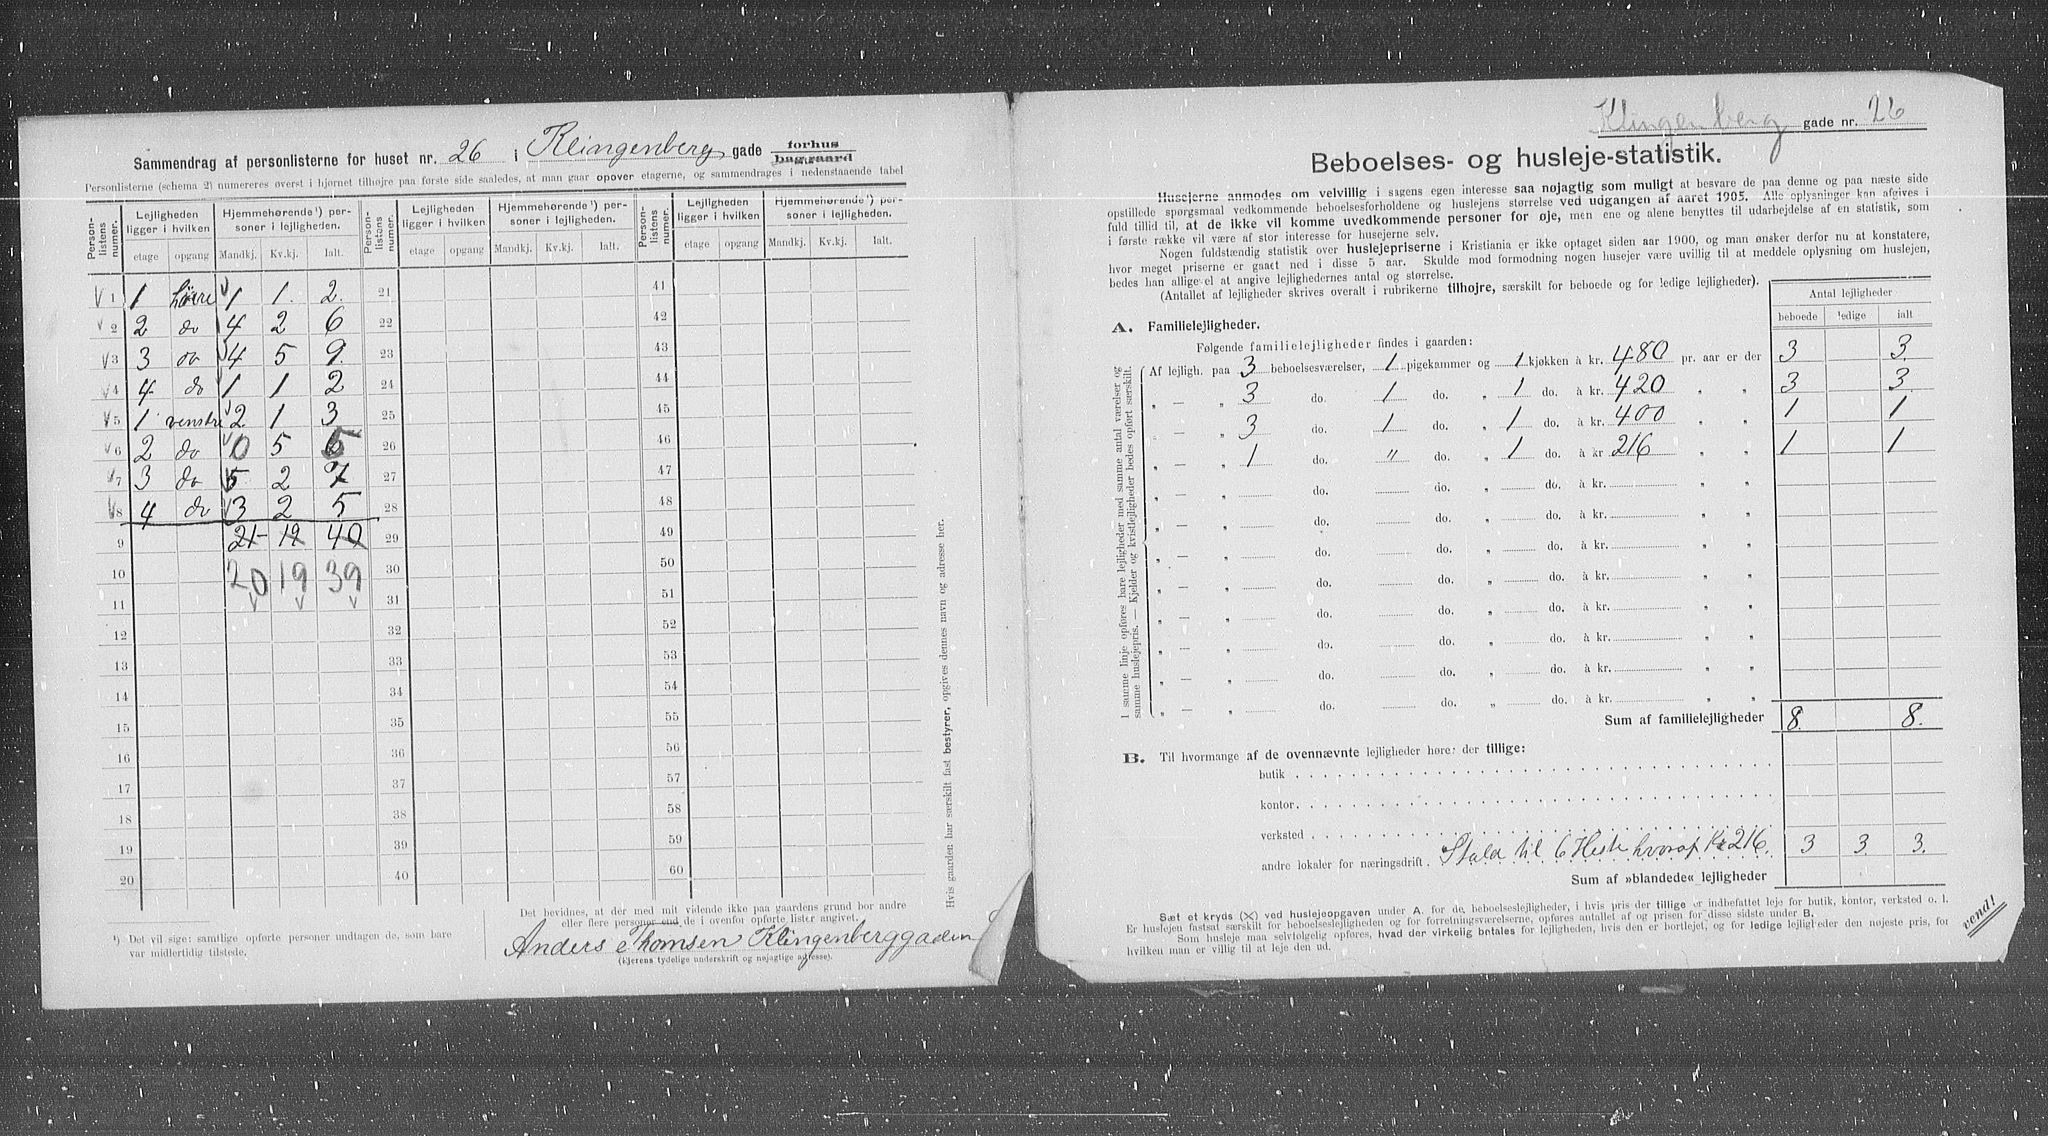 Sammendrag af personlisterne for huset nr. 26 i Klingenberg gade forhus
baggaard
Personlisterne (schema 2) numereres øverst i hjørnet tilhøjre paa første side saaledes, at man gaar opover etagerne, og sammendrages i nedenstaaende tabel
Person-listens numer. Lejligheden ligger i hvilken Hjemmehørende¹) personer i lejligheden. Person-listens numer. Lejligheden ligger i hvilken Hjemmehørende¹) personer i lejligheden. Person-listens numer. Lejligheden ligger i hvilken Hjemmehørende¹) personer i lejligheden.
etage opgang Mandkj. Kv.kj. Ialt. etage opgang Mandkj. Kv.kj. Ialt. etage opgang Mandkj. Kv.kj. Ialt.
V 1 1 höire 1 1. 2. 21 41
V 2 2 do 4 2 6 22 42
V 3 3 do 4 5 9. 23 43
V 4 4 do 1 1 2 24 44
V 5 1 venstre 2 1 3 25 45
V 6 2 do 0 5 5 26 46
V 7 3 do 5 2 7 27 47
V 8 4 do 3 2 5 28 48
9 21 19 40 29 49
10 20 19 39 30 50
11 31 51
12 32 52
13 33 53
14 34 54
15 35 55
16 36 56
17 37 57
18 38 58
19 39 59
20 40 60
Hvis gaarden har særskilt fast bestyrer, opgives dennes navn og adresse her.
¹) Det vil sige: samtlige opførte personer undtagen de, som bare
var midlertidig tilstede.
Det bevidnes, at der med mit vidende ikke paa gaardens grund bor andre
eller flere personer end de i ovenfor opførte lister angivet.
Anders Thomsen Klingenberggaden
(Ejerens tydelige underskrift og nøjagtige adresse).
Klingenberg gade nr. 26
Beboelses- og husleje-statistik.
Husejerne anmodes om velvillig i sagens egen interesse saa nøjagtig som muligt at besvare de paa denne og paa næste side
opstillede spørgsmaal vedkommende beboelsesforholdene og huslejens størrelse ved udgangen af aaret 1905. Alle oplysninger kan afgives i
fuld tillid til, at de ikke vil komme uvedkommende personer for øje, men ene og alene benyttes til udarbejdelse af en statistik, som
i første række vil være af stor interesse for husejerne selv.
Nogen fuldstændig statistik over huslejepriserne i Kristiania er ikke optaget siden aar 1900, og man ønsker derfor nu at konstatere,
hvor meget priserne er gaaet ned i disse 5 aar. Skulde mod formodning nogen husejer være uvillig til at meddele oplysning om huslejen,
bedes han alligevel at angive lejlighedernes antal og størrelse.
(Antallet af lejligheder skrives overalt i rubrikerne tilhøjre, særskilt for beboede og for ledige lejligheder).
Antal lejligheder
beboede ledige ialt
A. Familielejligheder.
Følgende familielejligheder findes i gaarden:
Af lejligh. paa 3 beboelsesværelser, 1 pigekammer og 1 kjøkken à kr. 480 pr. aar er der 3 3.
„ — „ 3 do. 1 do. „ 1 do. à kr. 420 „ „ 3 3.
„ — „ 3 do. 1 do. „ 1 do. à kr. 400 „ „ 1 1
„ — „ 1 do. „ do. „ 1 do. à kr 216 „ „ 1 1
„ — „ do. do. „ do. à kr. „ „
„ — „ do. do. „ do. à kr. „ „
„ — „ do. do. „ do. à kr. „ „
„ — „ do. do. „ do. à kr. „ „
„ — „ do. do. „ do. à kr. „ „
„ — „ do. do. „ do. à kr. „ „
„ — „ do. do. „ do. à kr. „ „
„ — „ do. do. „ do. à kr. „ „
I samme linje opføres bare lejligheder med samme antal værelser og
samme huslejepris. — Kjelder og kvistlejligheder bedes opført særskilt.
Sum af familielejligheder 8. 8.
B. Til hvormange af de ovennævnte lejligheder hører der tillige:
butik
kontor.
verksted
andre lokaler for næringsdrift. Stald til 6 Heste hvoraf Kr 216. 3 3 3.
Sum af »blandede« lejligheder
Sæt et kryds (X) ved huslejeopgaven under A. for de beboelseslejligheder, i hvis pris der tillige er indbefattet leje for butik, kontor, verksted o. l.
Er huslejen fastsat særskilt for beboelseslejligheden og for forretningsværelserne, opføres antallet af og prisen for disse sidste under B.
Som husleje maa selvfølgelig opføres, hvad der virkelig betales for lejligheden, hvis den er bortlejet, og for ledige lejligheder den nøjeste pris, for
hvilken man er villig til at leje den ud.
vend!